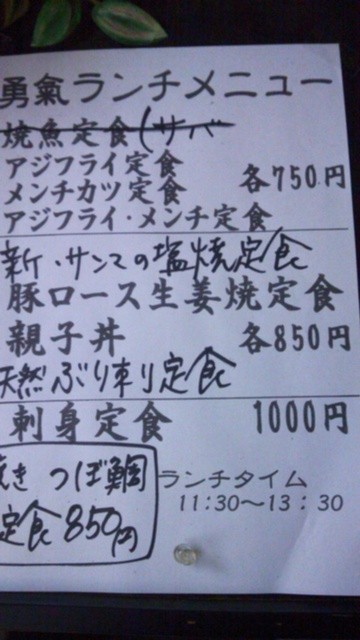 勇氣ランチメニュー
焼魚定食(サバ
アジフライ定食
メンチカツ定食
各750円
アジフライ・メンチ定食
新・サンマの塩焼定食
豚ロース生姜焼定食
親子丼
各850円
天然ぶり刺り定食
刺身定食
1000円
き つぼ鯛
定食850円
ランチタイム
11:30〜13:30